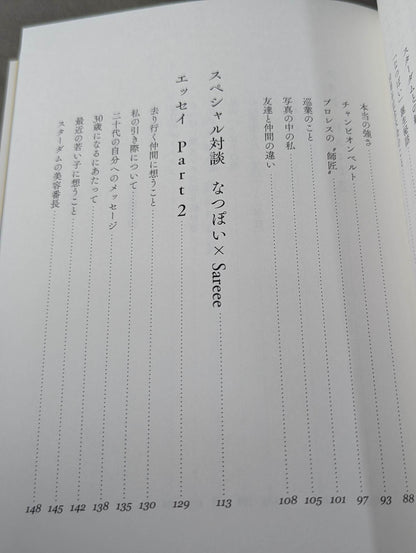 88
本当の強さ 93
チャンピオンベルト 97
プロレスの〝師匠〟 101
巡業のこと 105
写真の中の私 108
友達と仲間の違い
スペシャル対談 なつぽい×Sareee 113
エッセイ Part 2 129
去り行く仲間に想うこと 130
私の引き際について 135
二十代の自分へのメッセージ 138
30歳になるにあたって 142
最近の若い子に想うこと 145
スターダムの美容番長 148